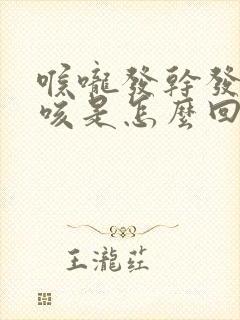 喉嚨發幹發
咳是怎麼回
王瀧莊